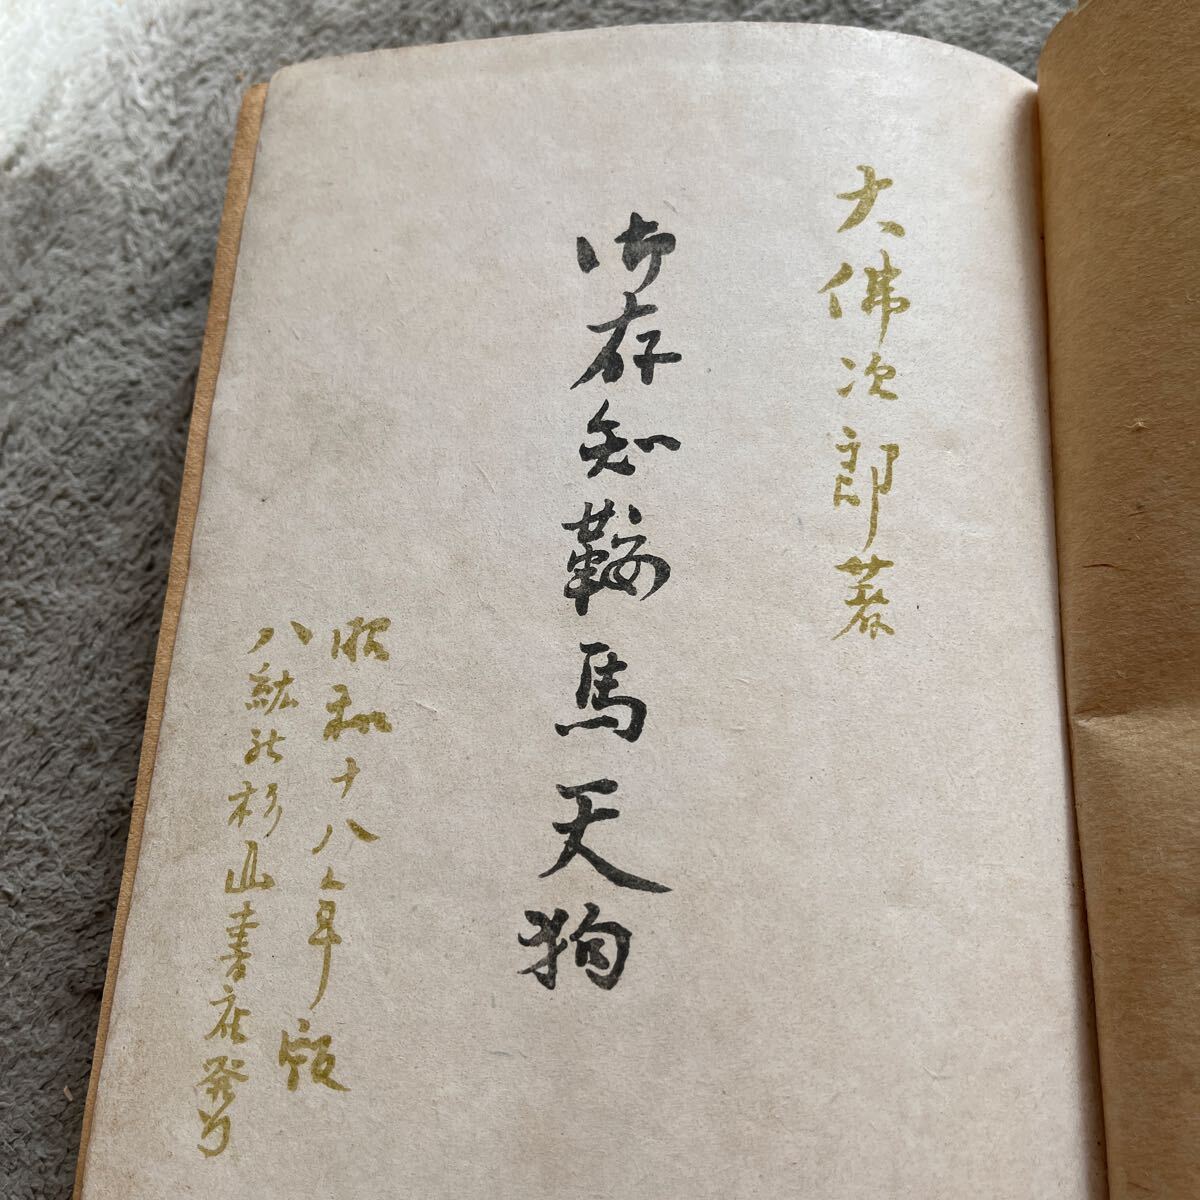 大佛次郎著
御存知鞍馬天狗
昭和十八年版
八紘社杉山書店発行